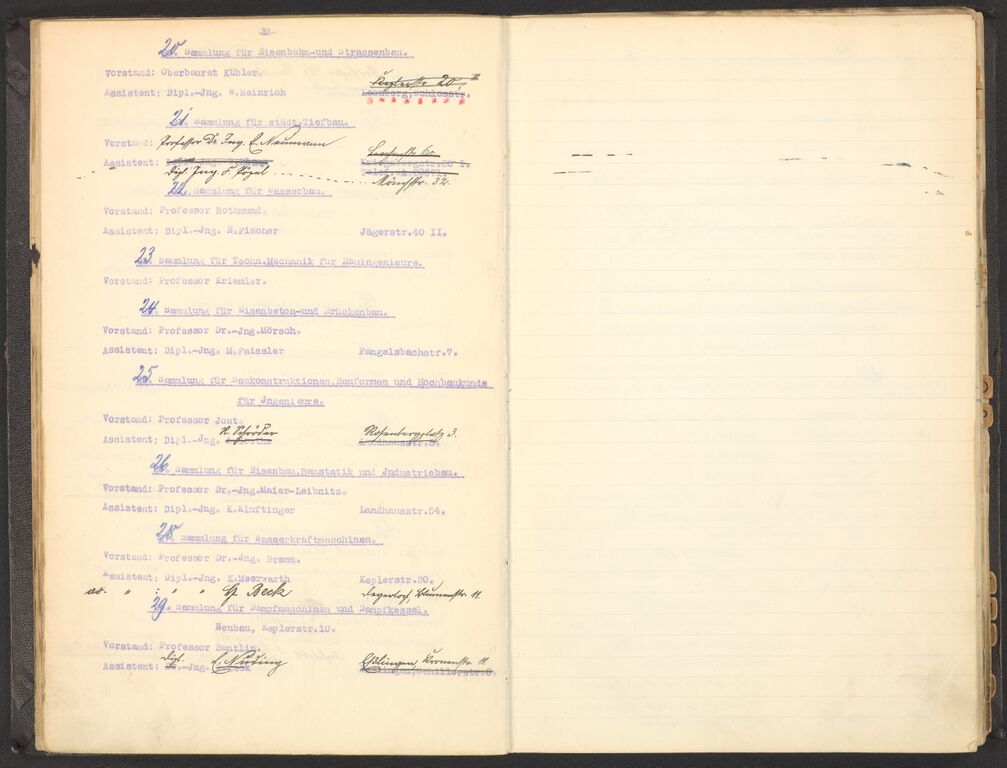 -12-
20. Sammlung für Eisenbahn-und Strassenbau.
Vorstand: Oberbaurat Kübler.
Assistent: Dipl.-Jng. W.Heinrich Keplerstr. 20, III
Leonberg, Schlosstr.
21. Sammlung für städt.Tiefbau.
Vorstand: Professor Dr. Ing. E. Neumann
Assistent: Kriegsbergstr. I.
Dipl. Ing. F. Vogel Mönchstr. 32.
22. Sammlung für Wasserbau.
Vorstand: Professor Rothmund.
Assistent: Dipl.-Jng. H.Fischer Jägerstr.40 II.
23. Sammlung für Techn.Mechanik für Bauingenieure.
Vorstand: Professor Kriemler.
24. Sammlung für Eisenbeton-und Brückenbau.
Vorstand: Professor Dr.-Jng.Mörsch.
Assistent: Dipl.-Jng. M.Faissler Fangelsbachstr.7.
25. Sammlung für Baukonstruktionen,Bauformen und Hochbaukunde
für Jngenieure.
Vorstand: Professor Jost.
Assistent: Dipl.-Jng. R. Schröder Rosenbergplatz 3.
Landhausstr.
26. Sammlung für Eisenbau,Baustatik und Jndustriebau.
Vorstand: Professor Dr.-Jng.Maier-Leibnitz.
Assistent: Dipl.-Jng. K.Kluftinger Landhausstr.54.
28. Sammlung für Wasserkraftmaschinen.
Vorstand: Professor Dr.-Jng. Braun.
Assistent: Dipl.-Jng. K.Meerwarth Keplerstr.20.
" : " " Beck Degerloch, Blumenstr. 11.
29. Sammlung für Dampfmaschinen und Dampfkessel.
Neubau, Keplerstr.10.
Vorstand: Professor Bantlin.
Assistent: Dipl.-Jng. E. Nusding Esslingen, Kronenstr. 11
Esslingen,Schillerstr.